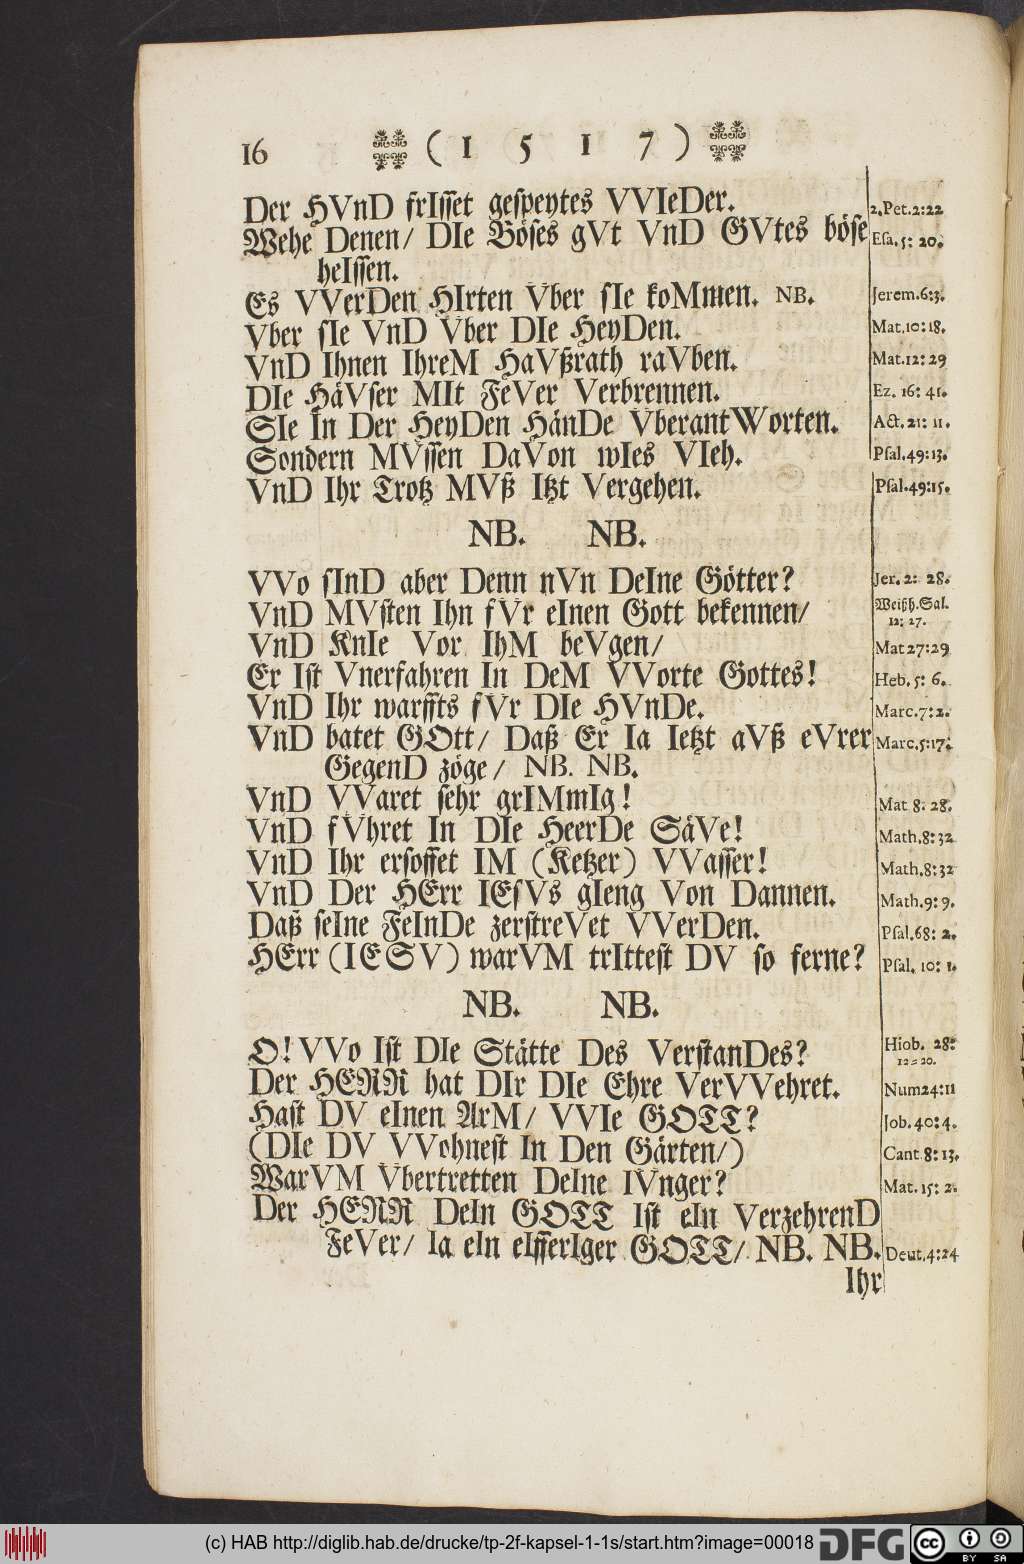 16 ( 1 5 1 7 )
Der HVnD frIsset gespeytes VVIeDer. 2. Pet. 2:22
Wehe Denen/ DIe Böses gVt VnD GVtes böse Esa. 5: 20.
heIssen.
Es VVerDen HIrten Vber sIe koMmen. NB. Jerem. 6:3.
Vber sIe VnD Vber DIe HeyDen. Mat. 10: 18.
VnD Ihnen IhreM HaVßrath raVben. Mat. 12: 29
DIe HäVser MIt FeVer Verbrennen. Ez. 16: 41.
SIe In Der HeyDen HänDe VberantWorten. Act. 21: 11.
Sondern MVssen DaVon wIes VIeh. Psal. 49:13.
VnD Ihr Trotz MVß Itzt Vergehen. Psal. 49:15.
NB. NB.
VVo sInD aber Denn nVn DeIne Götter? Jer. 2: 28.
VnD MVsten Ihn fVr eInen Gott bekennen/ Weißh. Sal. 12: 27.
VnD KnIe Vor IhM beVgen/ Mat 27:29
Er Ist Vnerfahren In DeM VVorte Gottes! Heb. 5: 6.
VnD Ihr warffts fVr DIe HVnDe. Marc. 7: 2.
VnD batet GOtt/ Daß Er Ia Ietzt aVß eVrer Marc. 5:17.
GegenD zöge/ NB. NB.
VnD VVaret sehr grIMmIg! Mat 8: 28.
VnD fVhret In DIe HeerDe SäVe! Math. 8: 32
VnD Ihr ersoffet IM (Ketzer) VVasser! Math. 8: 32
VnD Der HErr IEsVs gIeng Von Dannen. Math. 9: 9.
Daß seIne FeInDe zerstreVet VVerDen. Psal. 68: 2.
HErr (IESV) warVM trIttest DV so ferne? Psal. 10: 1.
NB. NB.
O! VVo Ist DIe Stätte Des VerstanDes? Hiob. 28: 12=20.
Der HERR hat DIr DIe Ehre VerVVehret. Num 24:11
Hast DV eInen ArM/ VVIe GOTT? Job. 40: 4.
(DIe DV VVohnest In Den Gärten/) Cant 8: 13.
WarVM Vbertretten DeIne IVnger? Mat. 15: 2.
Der HERR DeIn GOTT Ist eIn VerzehrenD
FeVer/ Ia eIn eIfferIger GOTT/ NB. NB. Deut. 4:24
Ihr
(c) HAB http://diglib.hab.de/drucke/tp-2f-kapsel-1-1s/start.htm?image=00018 DFG cc BY SA